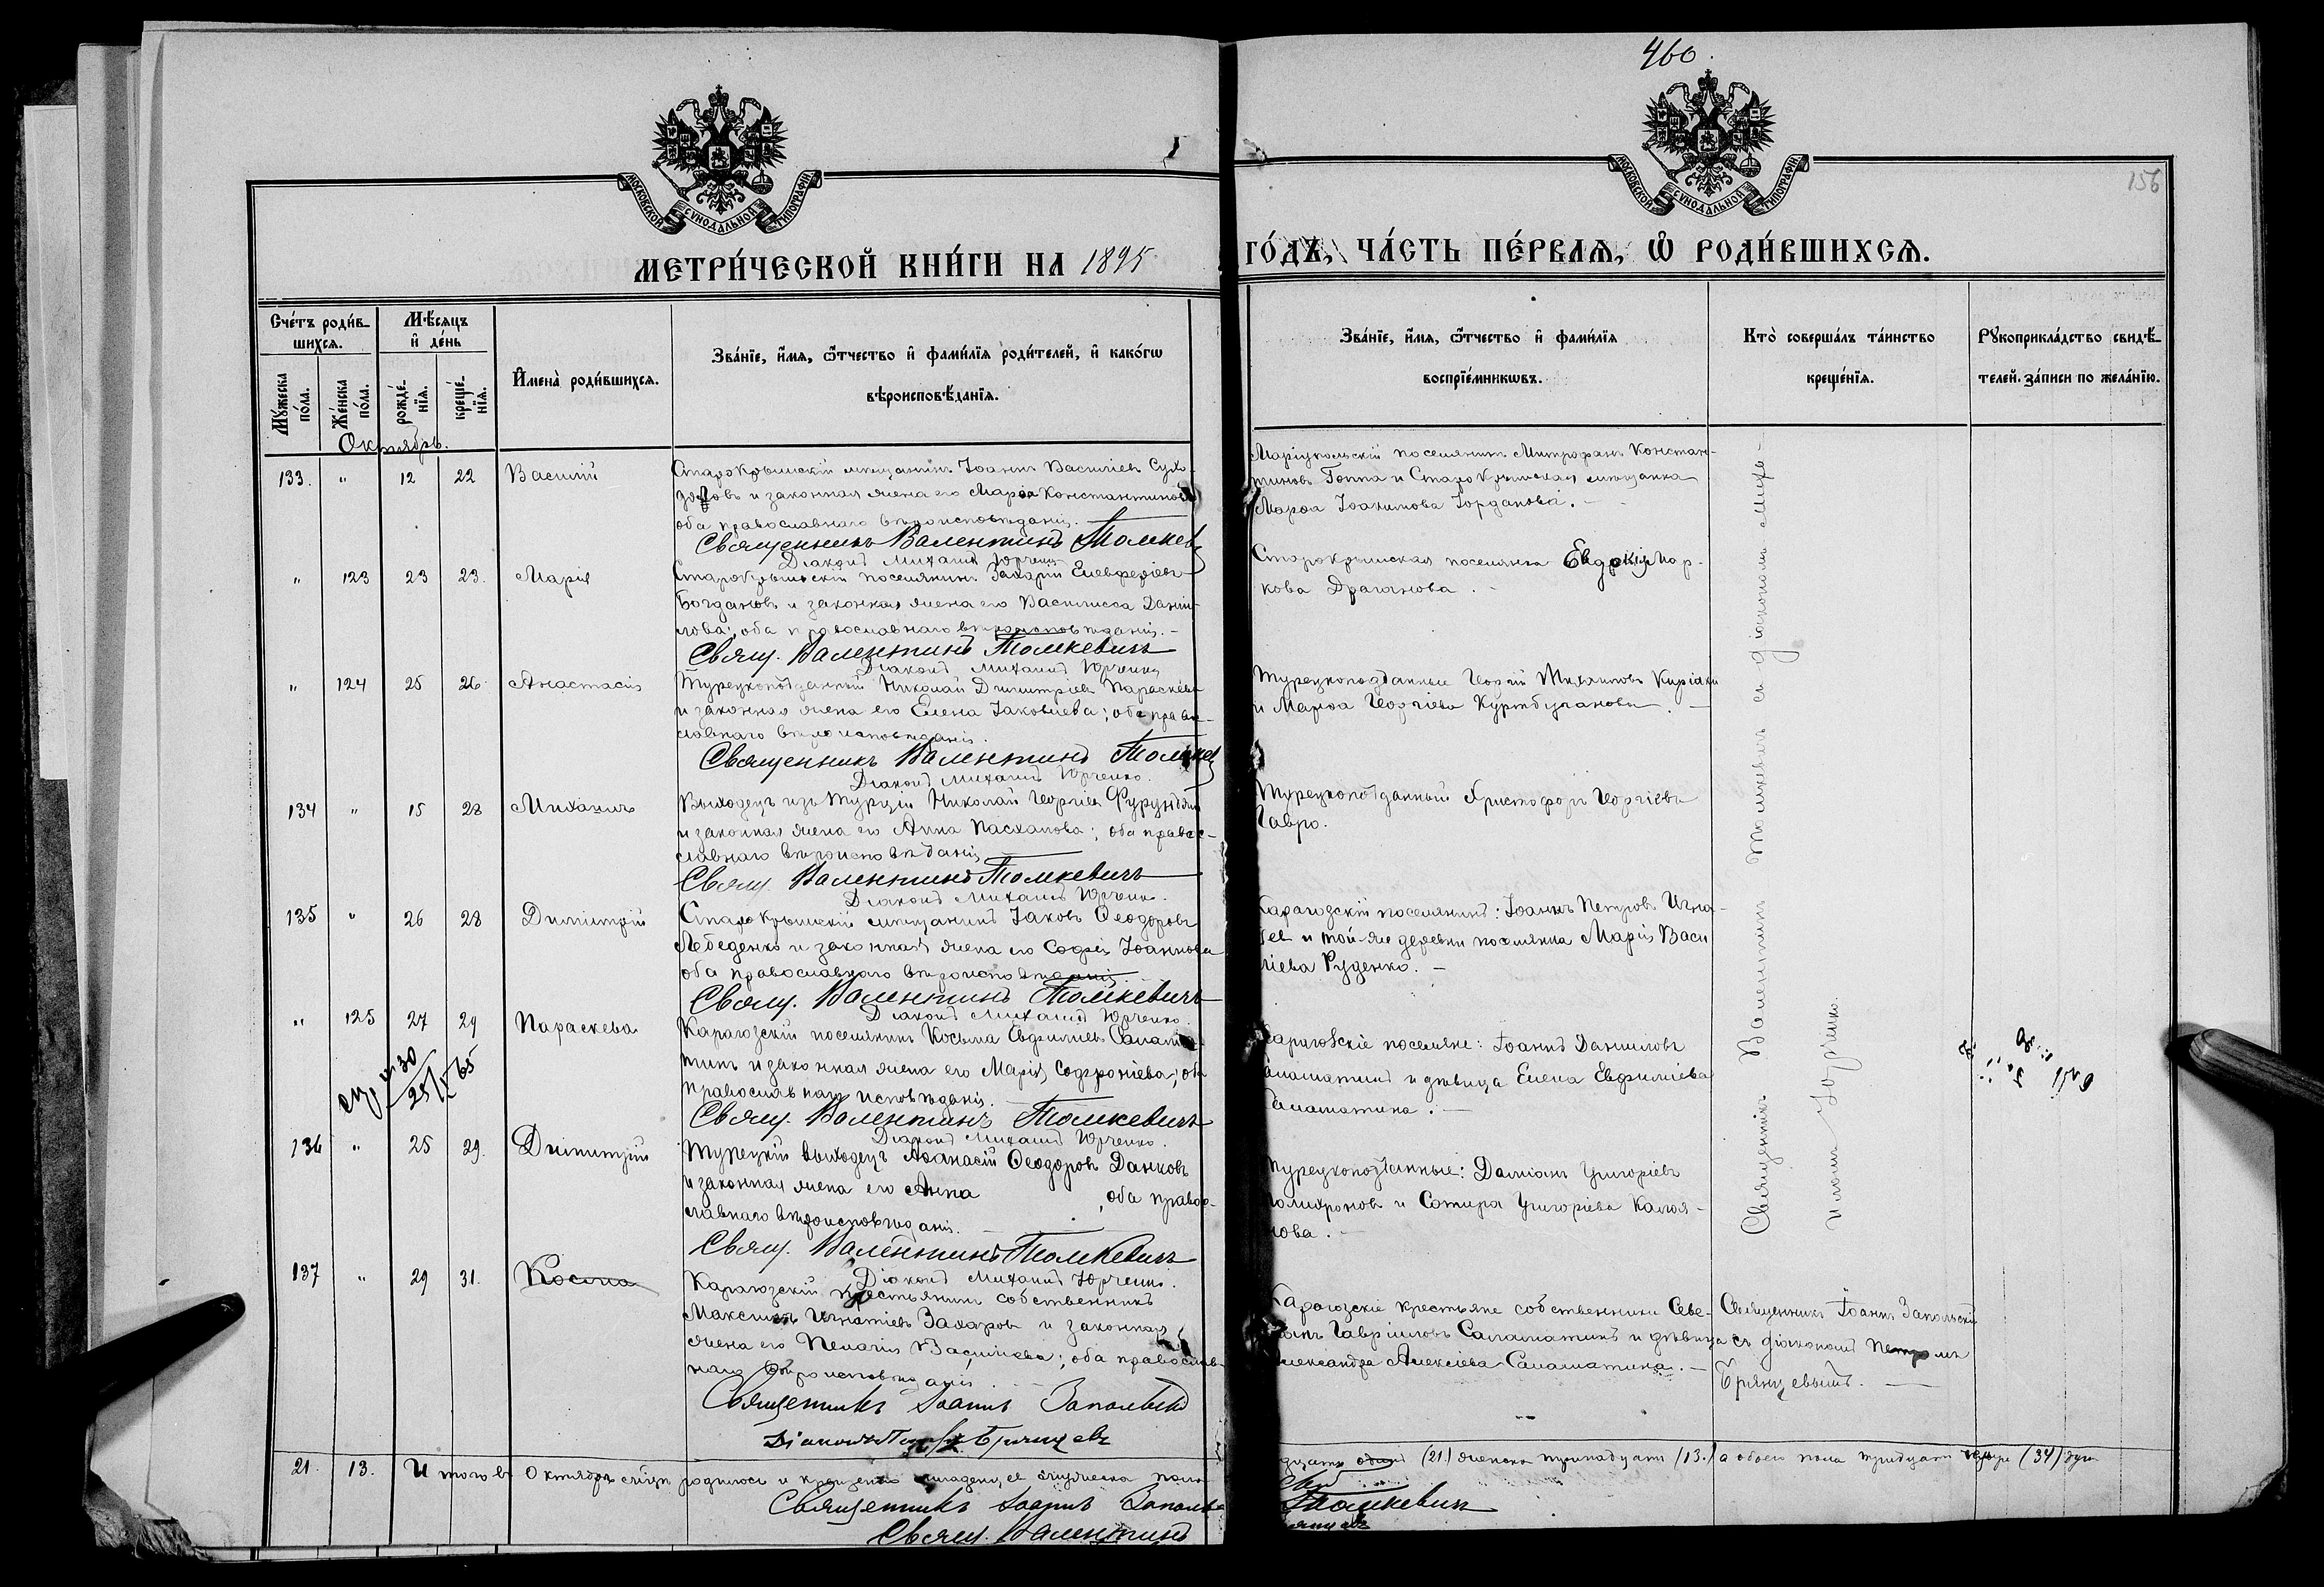 460.
156
МОСКОВСКОЙ СѴНОДАЛЬНОЙ ТИПОГРАФІИ
МОСКОВСКОЙ СѴНОДАЛЬНОЙ ТИПОГРАФІИ
МЕТРИ́ЧЕСКОЙ КНИ́ГИ НА 1895 ГО́ДЪ, ЧА́СТЬ ПЕ́РВАЯ, Ѽ РОДИ́ВШИХСЯ.
Сче́тъ роди́в-
шихся.
Мѣ́сяцъ
и҆ де́нь
Мꙋ́жеска
по́ла.
Же́нска
по́ла.
рожде́-
нїя.
креще́-
нїя.
И҆мена̀ роди́вшихся.
Зва́нїе, и҆́мя, ѻ҆́тчество и҆ фами́лїя роди́телей, и҆ како́гѡ
вѣроисповѣ́данїя.
Зва́нїе, и҆́мя, ѻ҆́тчество и҆ фами́лїя
воспрїе́мникѡвъ.
Кто̀ соверша́лъ та́инство
креще́нїя.
Рꙋкоприкла́дство свидѣ́-
телей за́писи по жела́нїю.
Октябрь.
133. " 12 22 Василій
Старокрымскій мѣщанинъ Іоаннъ Васильевъ
и законная жена его Марѳа Константинова
оба православнаго вѣроисповѣданія.
Священникъ Валентинъ Томкев
Діаконъ Михаилъ Юрченко
Маріупольскій поселянинъ Митрофанъ Констан-
тиновъ Гоппа и Старокрымская мѣщанка
Марѳа Іоакимова Іорданова.
" 123 23 23. Марія
Старокрымскій поселянинъ Захарій Елевферіевъ
Богдановъ и законная жена его Василисса Даніи-
лова; оба православнаго вѣроисповѣданія.
Свящ. Валентинъ Томкевичъ
Діаконъ Михаилъ Юрченко
Старокрымская поселянка Евдокія Мар-
кова Драганова.
" 124 25 26 Анастасія
Турецкоподданный Николай Димитріевъ Параскева
и законная жена его Елена Іаковлева; оба право-
славнаго вѣроисповѣданія.
Священникъ Валентинъ Томкев
Діаконъ Михаилъ Юрченко.
Турецкоподданные Георгій Михаиловъ
и Марѳа Георгіева
134 " 15 28 Михаилъ
Выходецъ изъ Турціи Николай Георгіевъ
и законная жена его Анна Пасхалова; оба право-
славнаго вѣроисповѣданія
Свящ. Валентинъ Томкевичъ
Діаконъ Михаилъ Юрченко.
Турецкоподданный Христофоръ Георгіевъ
Гавро.
135 " 26 28 Димитрій
Старокрымскій мѣщанинъ Іаковъ Ѳеодоровъ
Лебеденко и законная жена его Софія Іоаннова
оба православнаго вѣроисповѣданія
Свящ. Валентинъ Томкевичъ
Діаконъ Михаилъ Юрченко.
Карагозскій поселянинъ: Іоаннъ Петровъ Игна-
тьев и той-же деревни поселянка Марія Васи
ліева Руденко.
" 125 27 29 Параскева
Карагозскій поселянинъ Косьма Евфиміевъ Салама-
тинъ и законная жена его Марія Софроніева; оба
православнаго исповѣданія.
Свящ. Валентинъ Томкевичъ
Діаконъ Михаилъ Юрченко.
Карагозскіе поселяне: Іоаннъ Даниловъ
Саламатинъ и дѣвица Елена Евфиміева
Саламатина.
136 " 25 29. Димитрій
Турецкій выходецъ Аѳанасій Ѳеодоровъ Данковъ
и законная жена его Анна , оба право-
славнаго вѣроисповѣданія.
Свящ. Валентинъ Томкевичъ
Діаконъ Михаилъ Юрченко.
Турецкоподданные: Даміанъ Григоріевъ
и Сотира Григоріева Калоя-
нова.
Священникъ Валентинъ Томкевичъ съ діакономъ Миха-
иломъ Юрченко.
137 " 29 31. Косма
Карагозскій крестьянинъ собственникъ
Максимъ Игнатіевъ Захаровъ и законная
жена его Пелагія Васильева; оба православ-
наго вѣроисповѣданія.
Священникъ Іоаннъ Запольскій
Діаконъ Петръ Брянцевъ
Карагозскіе крестьяне собственники Севе-
Гавріиловъ Саламатинъ и дѣвица
Александра Алексіева Саламатина.
Священникъ Іоаннъ Запольскій
съ діакономъ Петромъ
Брянцевымъ.
21. 13. Итого въ Октябрѣ мѣсяцѣ родилось и крещено младенцевъ мужеска пола
двадцать одинъ (21.) женска тринадцать (13.) а обоего пола тридцать четыре (34) душ
Священникъ Іоаннъ Запольскій
Свящ. Валентинъ Томкевичъ